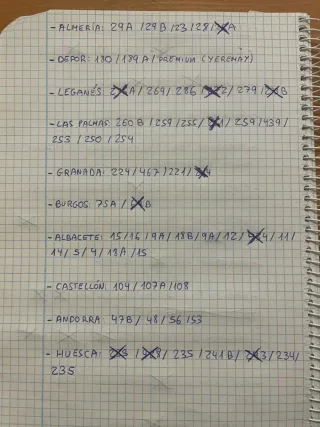 - ALMERÍA: 29A / 29B / 23 / 28 / A
- DEPOR: 180 / 189A / PREMIUM (YEREMAY)
- LEGANÉS: A / 269 / 286 / 2 / 279 / B
- LAS PALMAS: 260B / 259 / 255 / 1 / 259 / 439 /
253 / 250 / 254
- GRANADA: 224 / 467 / 221 /
- BURGOS: 75A / B
- ALBACETE: 15 / 16 / 9A / 18B / 9A / 12 / 4 / 11 /
14 / 5 / 4 / 18A / 15
- CASTELLÓN: 104 / 107A / 108
- ANDORRA: 47B / 48 / 56 / 53
- HUESCA: / 8 / 235 / 241B / 3 / 234 /
235